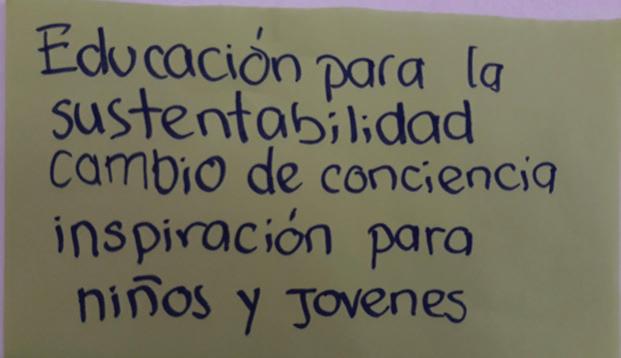 Educación para la
sustentabilidad
cambio de conciencia
inspiración para
niños y Jovenes